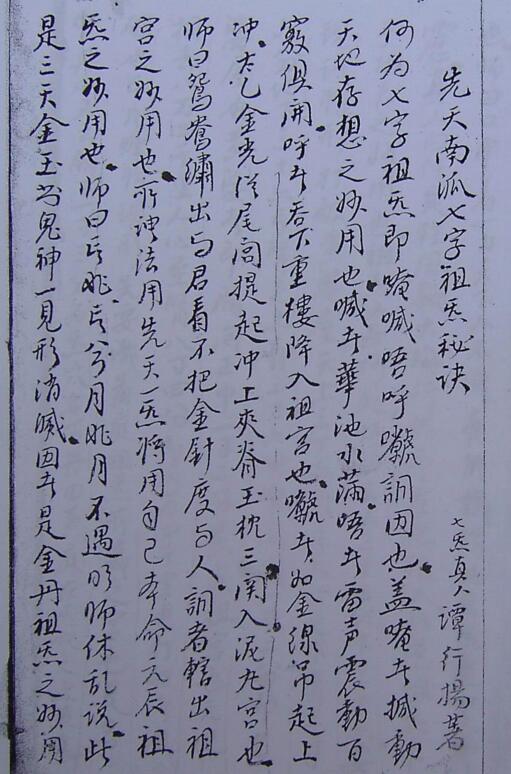 先天南派七字祖炁秘诀
七炁真人谭行扬著
何为七字祖炁即唵喊唔呼囐訓因也盖唵者撼動
天地存想之妙用也喊者華池水滿唔者雷声震動百
竅俱開呼者吞下重樓降入祖宫也囐者如金線吊起上
冲太乙金光從尾闾提起冲上夾脊玉枕三関入泥丸宫也
师曰鴛鴦繡出与君看不把金針度与人訓者轄出祖
宫之妙用也所謂法用先天一炁将用自己本命元辰祖
炁之妙用也师曰月不遇明师休乱説此
是三天金玉鬼神一見形消滅因者是金丹祖炁之妙用